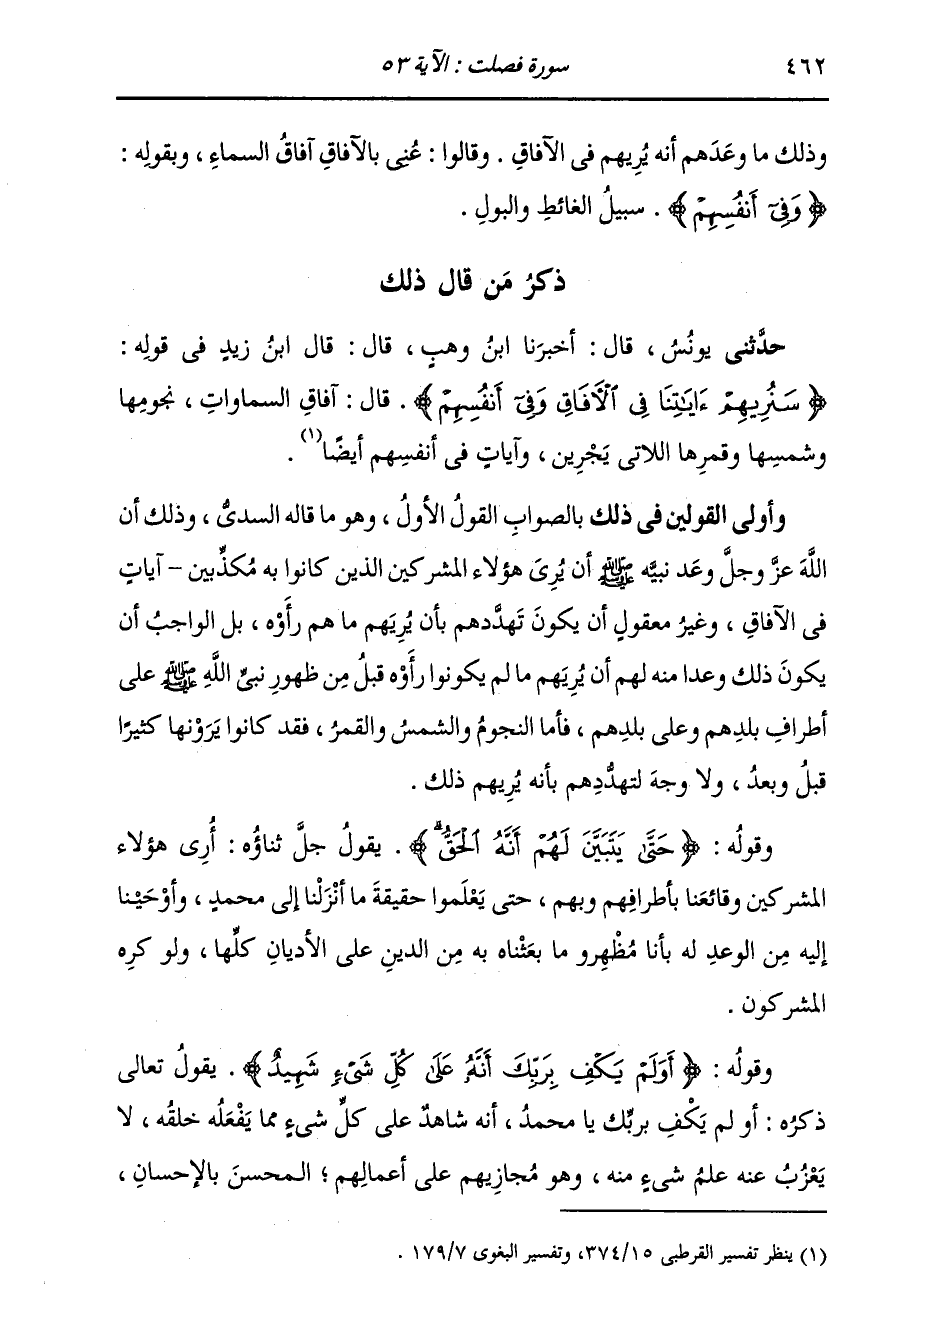 ٤٦٢
سورة فصلت : الآية ٥٣
وذلك ما وعَدَهم أنه يُرِيهم فى الآفاقِ . وقالوا : عُنِى بالآفاقِ آفاقُ السماءِ ، وبقولِه :
﴿ وَفِىٓ أَنفُسِهِمْ ﴾ . سبيلُ الغائطِ والبولِ .
ذكرُ مَن قال ذلك
حدَّثنى يونُسُ ، قال : أخبرَنا ابنُ وهبٍ ، قال : قال ابنُ زيدٍ فى قولِه :
﴿ سَنُرِيهِمْ ءَايَٰتِنَا فِى ٱلْأَفَاقِ وَفِىٓ أَنفُسِهِمْ ﴾ . قال : آفاقِ السماواتِ ، نجومِها
وشمسِها وقمرِها اللاتى يَجْرِين ، وآياتٍ فى أنفسِهم أيضًا(١) .
وأولى القولين فى ذلك بالصوابِ القولُ الأولُ ، وهو ما قاله السدىُّ ، وذلك أن
اللَّهَ عزَّ وجلَّ وعَد نبيَّه ﷺ أن يُرِىَ هؤلاء المشركين الذين كانوا به مُكذِّبين – آياتٍ
فى الآفاقِ ، وغيرُ معقولٍ أن يكونَ تَهدَّدهم بأن يُرِيَهم ما هم رأَوْه ، بل الواجبُ أن
يكونَ ذلك وعدا منه لهم أن يُرِيَهم ما لم يكونوا رأَوْه قبلُ مِن ظهورِ نبىِّ اللَّهِ ﷺ على
أطرافِ بلدِهم وعلى بلدِهم ، فأما النجومُ والشمسُ والقمرُ ، فقد كانوا يَرَوْنها كثيرًا
قبلُ وبعدُ ، ولا وجهَ لتهدُّدِهم بأنه يُرِيهم ذلك .
وقولُه : ﴿ حَتَّىٰ يَتَبَيَّنَ لَهُمْ أَنَّهُ ٱلْحَقُّ ۗ ﴾ . يقولُ جلَّ ثناؤُه : أُرِى هؤلاء
المشركين وقائعَنا بأطرافِهم وبهم ، حتى يَعْلَموا حقيقةَ ما أنْزَلْنا إلى محمدٍ ، وأوْحَيْنا
إليه مِن الوعدِ له بأنا مُظْهِرو ما بعَثْناه به مِن الدينِ على الأديانِ كلِّها ، ولو كرِه
المشركون .
وقولُه : ﴿ أَوَلَمْ يَكْفِ بِرَبِّكَ أَنَّهُۥ عَلَىٰ كُلِّ شَىْءٍ شَهِيدٌ ﴾ . يقولُ تعالى
ذكرُه : أو لم يَكْفِ بربِّك يا محمدُ ، أنه شاهدٌ على كلِّ شىءٍ مما يَفْعَلُه خلقُه ، لا
يَعْزُبُ عنه علمُ شىءٍ منه ، وهو مُجازِيهم على أعمالِهم ؛ المحسنَ بالإحسانِ ،
(١) ينظر تفسير القرطبى ٣٧٤/١٥، وتفسير البغوى ١٧٩/٧ .